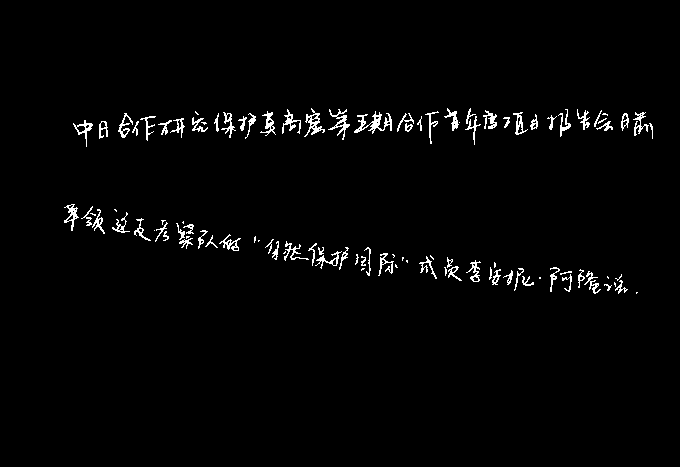 中日合作研究保护莫高窟第五期合作首年度项目报告会日前
率领这支考察队的“自然保护国际”成员李安妮·阿隆说.